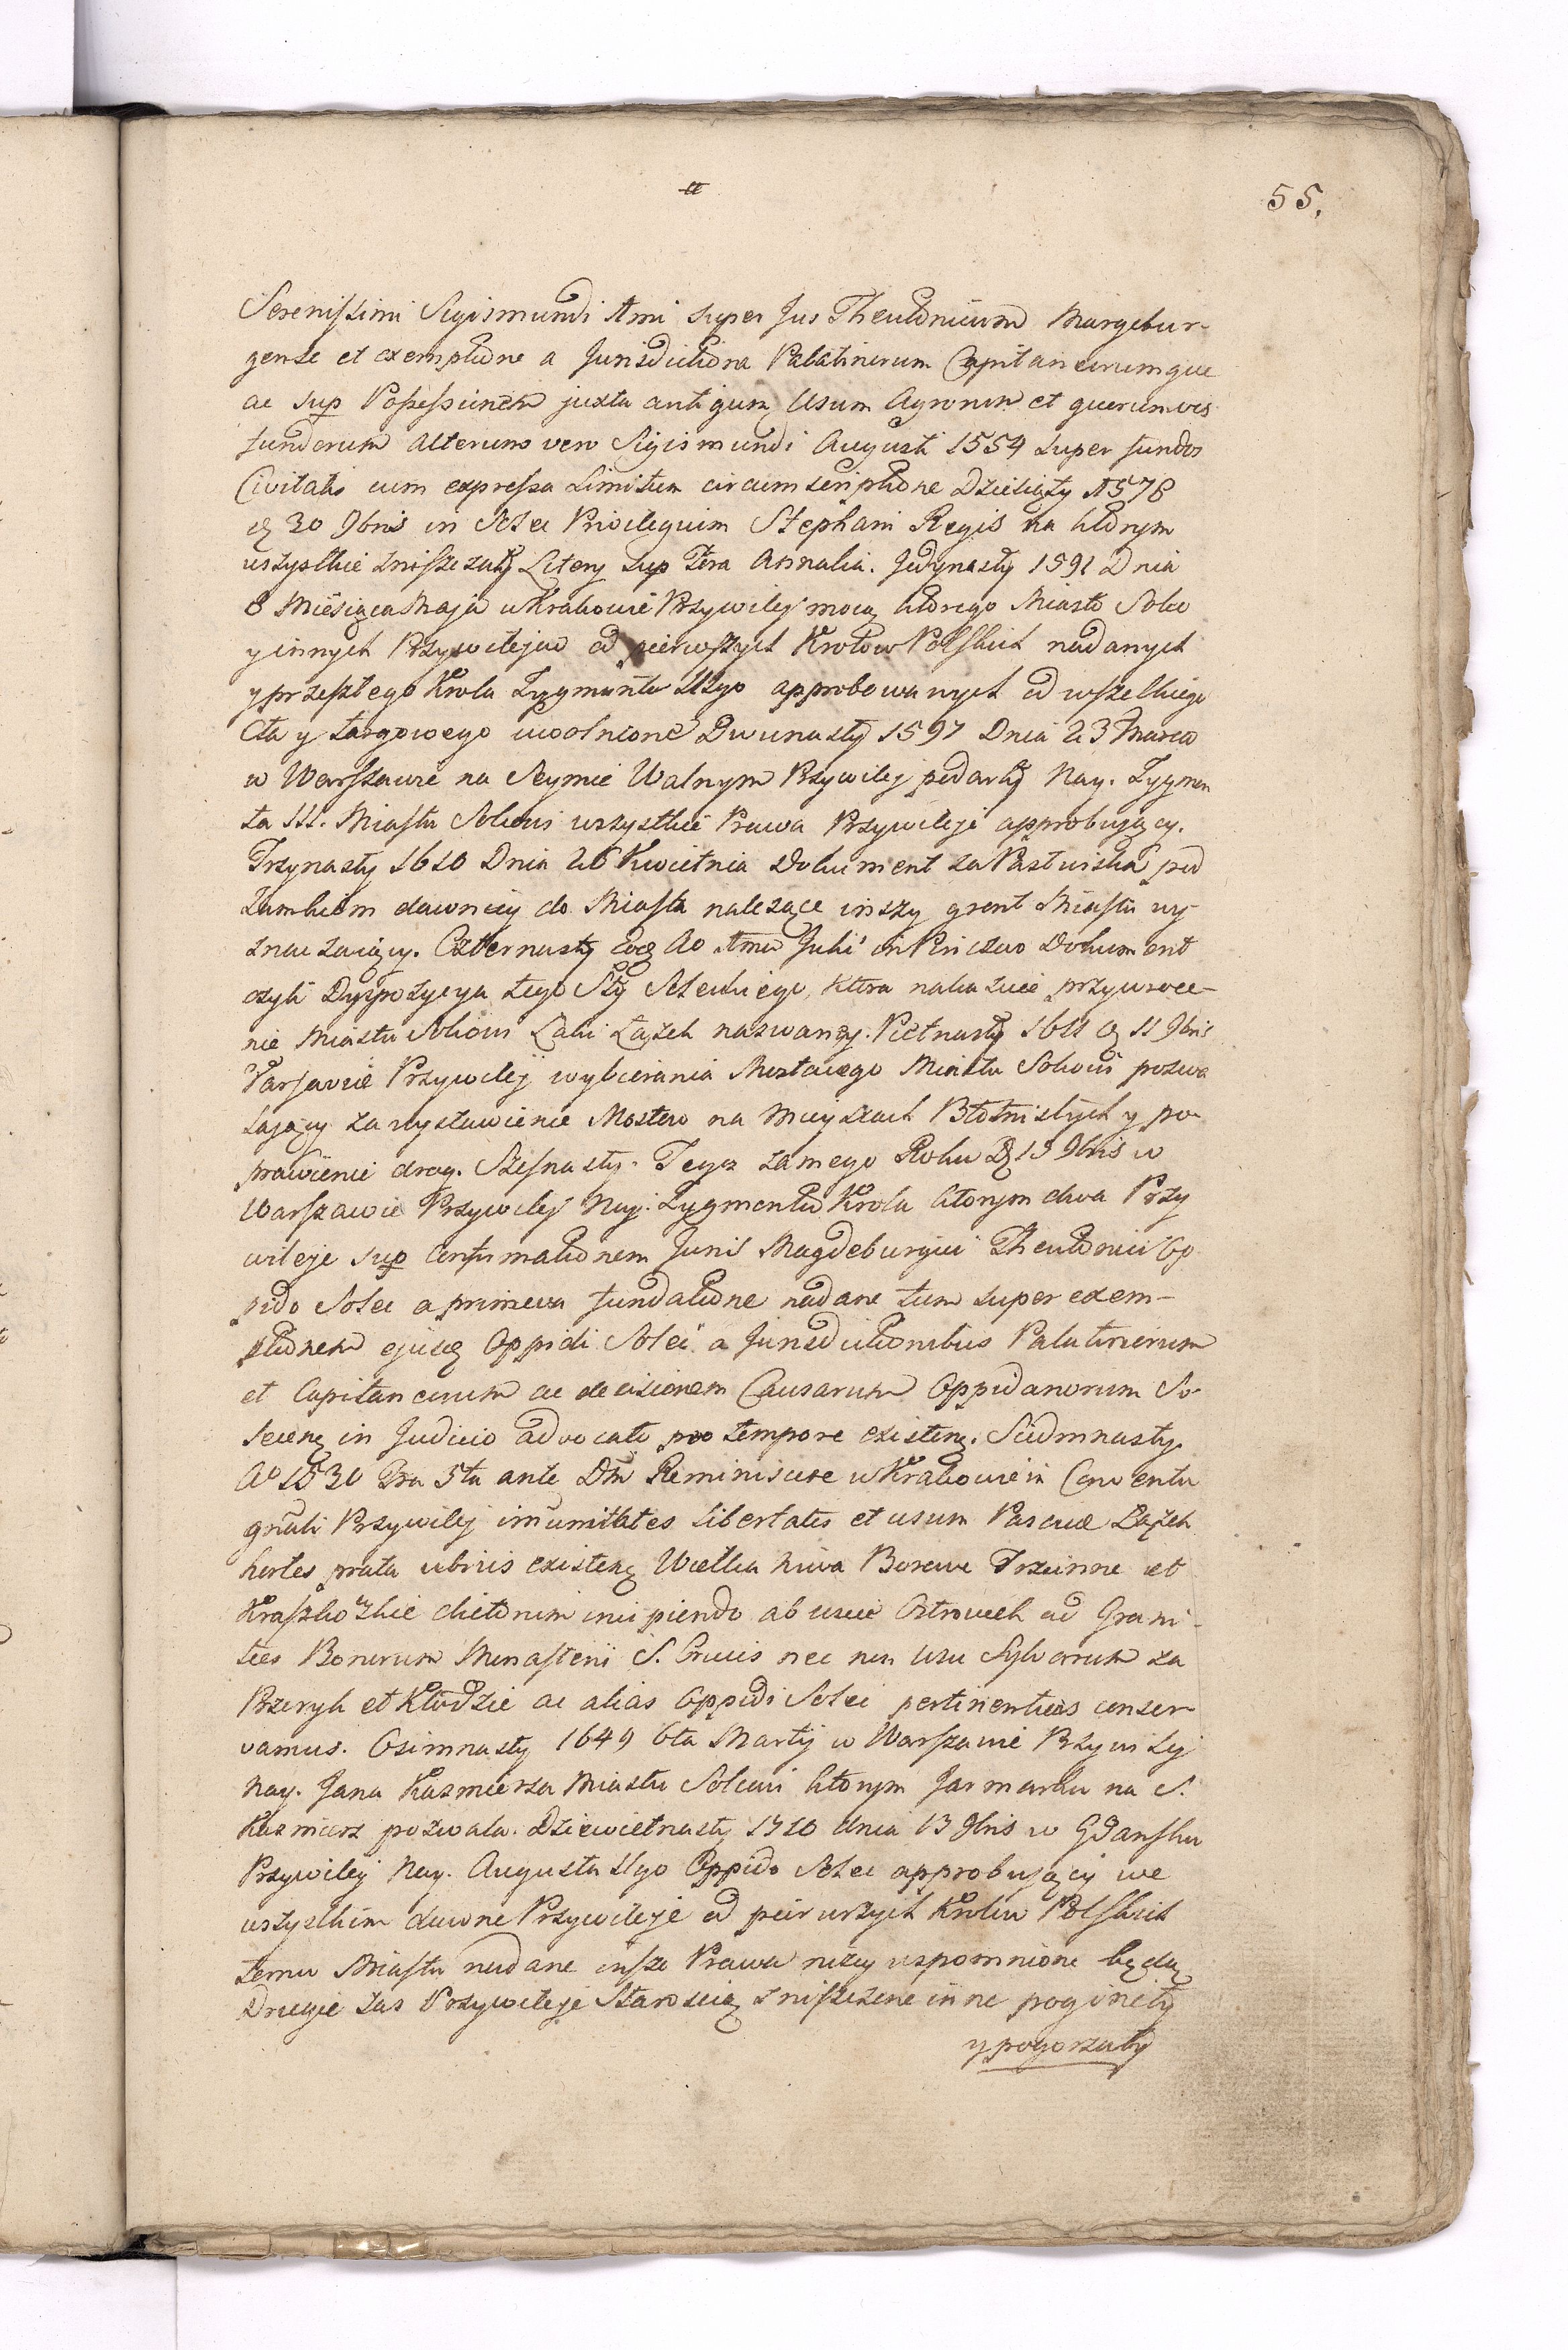 a
55.
Serenissimi Sigismundi Ami super Jus Theutonicum Margebur-
gense et exemptione a Jurisdictione Palatinorum Capitaneorumque
ac sup Possessionem juxta antiquum Usum Agrorum et quorumvis
fundorum alterum vero Sigismundi Augusti 1554 super fundos
Civitatis cum expressa Limitum circumscriptione Dziesiąty 1578
d 30 9bris in Solec Privilegium Stephani Regis na którym
wszystkie zniszczały Litery sup Fora Annalia. Jedynasty 1591 Dnia
8 Miesiąca Maja w Krakowie Przywilej mocą którego Miasto Solec
y innych Przywilejów od pierwszych Królow Polskich nadanych
y przeszłego Krola Zygmunta IIIgo approbowanych od wszelkiego
Cła y targowego uwolnione Dwunasty 1597 Dnia 23 Marca
w Warszawie na Seymie Walnym Przywilej podarty Nay. Zygmon
ta III. Miasta Solcowi wszystkie Prawa Przywileje approbujący.
Trzynasty 1610 Dnia 26 Kwietnia Dokument za Pastwiska pod
Zamkiem dawniey do Miasta należące inszy gront Miastu wy-
znaczaiący. Czternasty Eodẽ Ao Ama Julii in Pinczow Dokument
czyli Dyspozycya tego Sty Soleckiego, ktora nakazuie przywroce-
nie Miastu Solcowi Łąki Łążek nazwaney. Piętnasty 1611 d 11 9bris
Varsavie Przywilej wybierania Mostowego Miastu Solcowi pozwa
lający za wystawienie Mostow na Mieyscach Błotnistych y po-
prawienie drog. Szesnasty. Tegoz samego Roku D 15 9bris w
Warszawie Przywilej Nay. Zygmonta Krola ktorym dwa Przy
wileje sup Confirmationem Juris Magdeburgici Theutonici Op
pido Solec a primeva fundatione nadane tum super exem-
ptionem ejusdẽ Oppidi Solec a Jurisdictionibus Palatinorum
et Capitaneorum ac decisionem Causarum Oppidanorum So-
lecenẽ in Judicio advocati pro tempore existenẽ. Siedmnasty.
Ao 1530 Fra 5ta ante Dm Reminiscere w Krakowie in Conventu
gnãli Przywilej imunitates libertates et usum Pascuæ Łążek
hortos prata ubivis existenẽ Wielka niwa Borowe Trzcinne et
Kraszko Zkie dictorum incipiendo ab uscie Ostrowek ad Grani-
cies Bonorum Monasterii S. Crucis nec non usu Sylvarum za
Brzeryk et Kłudzie ac alias Oppidi Solec pertinentias conser
vamus. Osimnasty 1649 6ta Martij w Warszawie Przywilej
Nay. Jana Kazmierza Miastu Solcowi którym Jarmarku na S.
Kazmierz pozwala. Dziewietnasty 1710 dnia 13 9bris w Gdansku
Przywilej Nay. Augusta IIgo Oppido Solec approbujący we
wszystkim dawne Przywileje od peirwszych Krolow Polskich
temu Miastu nadane insze Prawa niżey wspomnione będą,
Drugie zas Przywileje Staroscią zniszczone inne poginęły
y pogorzały